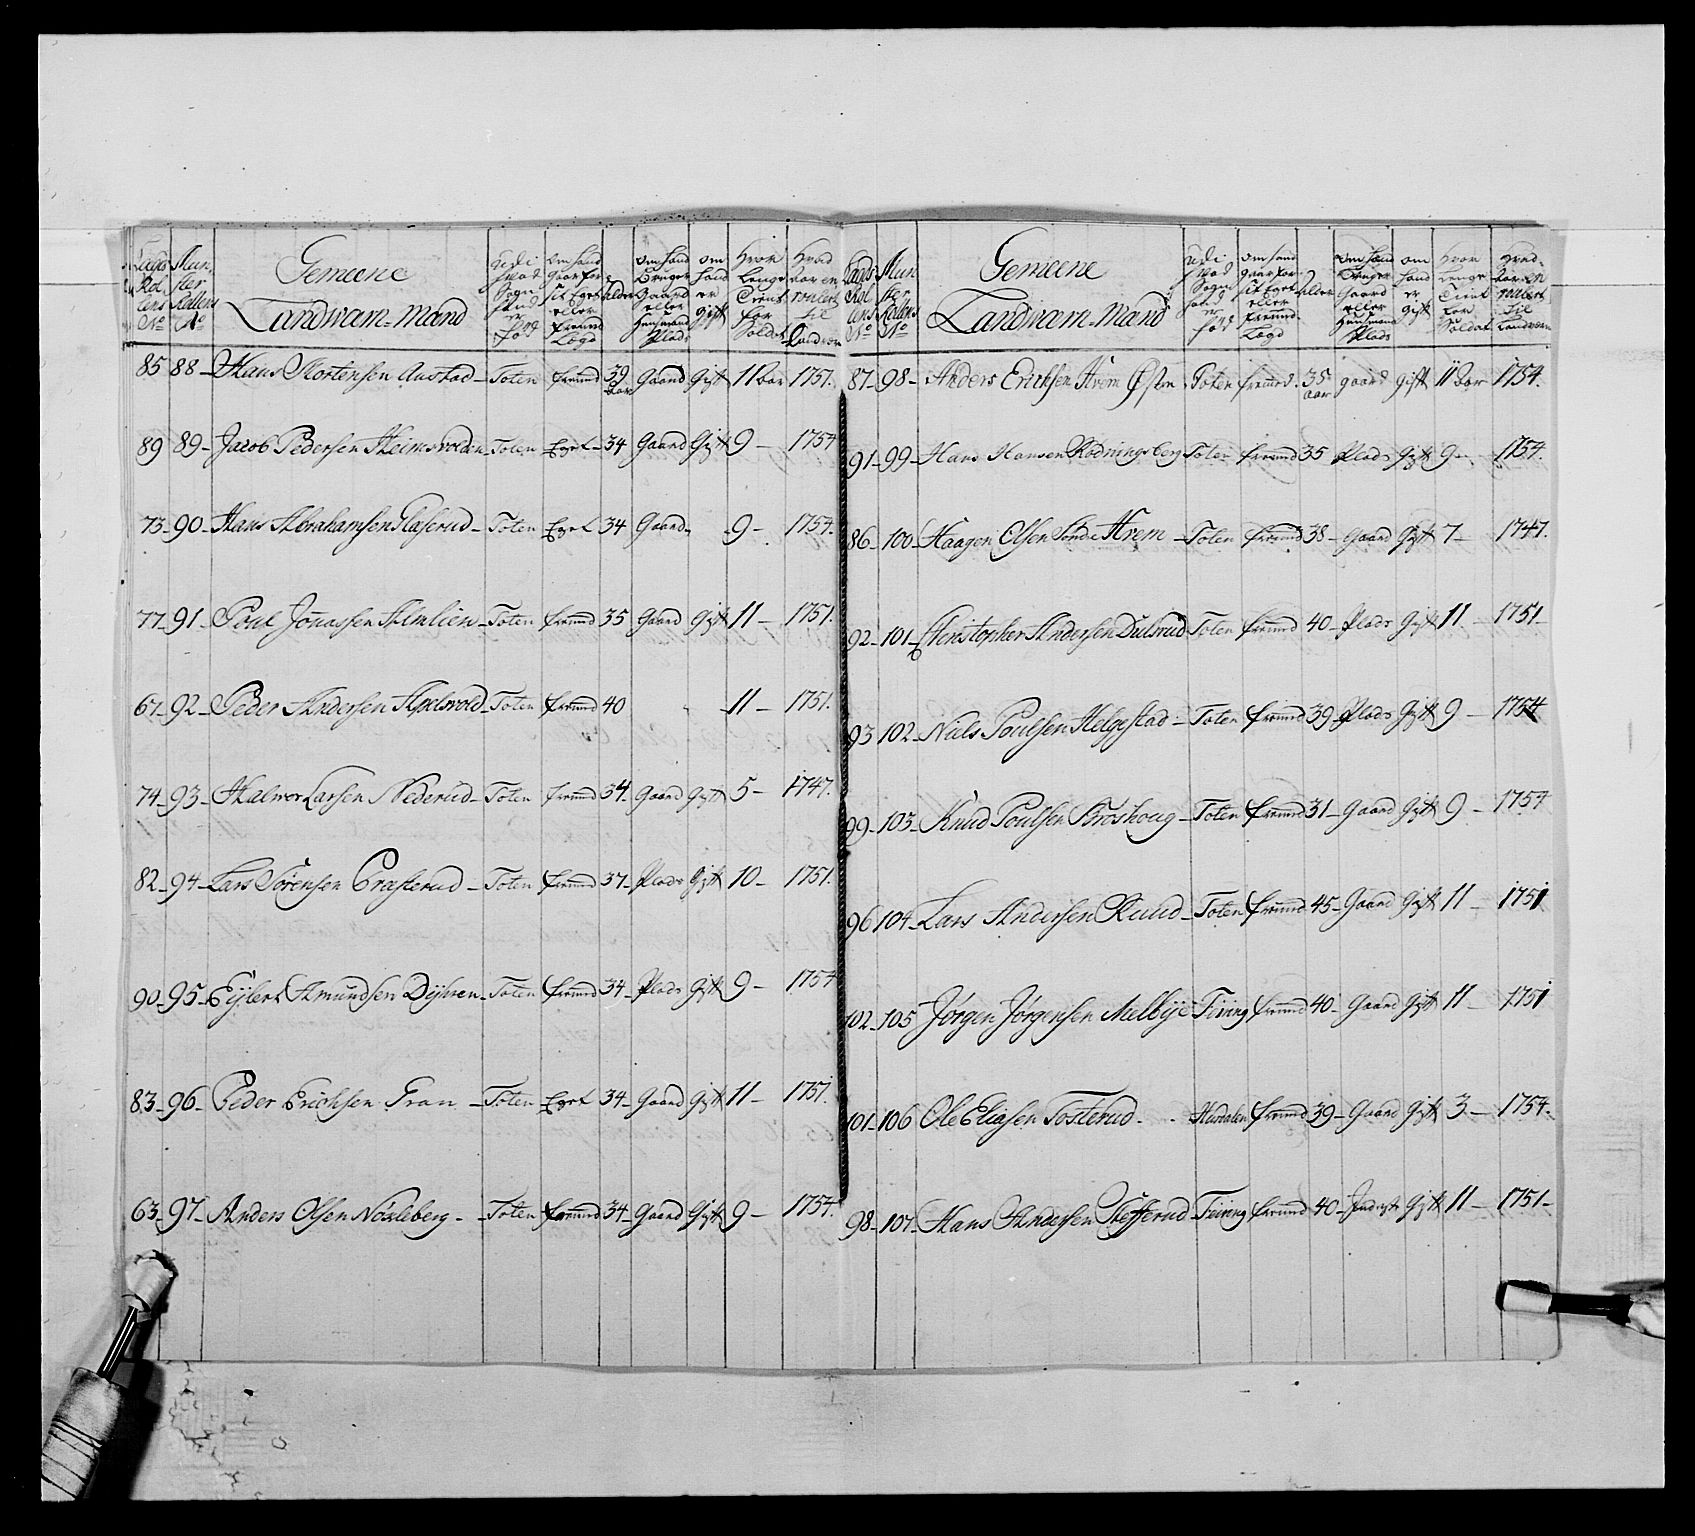 Lægds Rol lens No
Mun ster Rollens No
Gemeene Landwærn-Mand
Udi hvad Sogn hand er fød
Om hand gaar for sit Eget eller fremmd Lægd
Alder
Om hand bruger Gaard eller Huusmands Plads
Om hand er gift
Hvor lenge tient for Soldat
Hvad Aar enrulert til Landværn
85 88 - Hans Mortensen Austad - Toten fremd 39 Aar Gaard Gift 11 Aar 1751.
89 89 - Jacob Pedersen Heimsvolden - Toten Eget - 34 Gaard Gift 9 - 1754
73 - 90 - Hans Abrahamsen Glaserud - Toten Eget 34 Gaard - 9 - 1754.
77 - 91 - Poul Jonassen Almlien - Toten fremd 35 Gaard Gift 11 - 1751.
67 - 92 - Peder Andersen Apelsvold - Toten fremd 40 - 11 - 1751.
74 - 93 - Halvor Larsen Nederud - Toten fremd 34 - Gaard Gift 5 - 1747.
82 - 94 - Lars Sørensen Præsterud - Toten fremd 37 - Plads Gift 10 - 1751.
90 - 95 - Eÿlert Amundsen Dÿhren - Toten fremd 34 - Plads Gift 9 - 1754
83 - 96 - Peder Erichsen Gran - Toten Eget 34 - Gaard Gift 11 - 1751.
63 - 97 - Anders Olsen Nøsleberg - Toten fremd 34 - Gaard Gift 9 - 1754.
Lægds Rol lens No
Mun ster Rollens No
Gemeene Landwærn-Mand
Udi hvad Sogn hand er fød
Om hand gaar for sit Eget eller fremmd Lægd
Alder
Om hand bruger Gaard eller Huusmands Plads
Om hand er gift
Hvor lenge tient for Soldat
Hvad Aar en rulert til Landværn
87 - 98 - Anders Ericksen Hrem Østre - Toten fremd. 35 aar gaard gift 11 Aar 1754.
91 - 99 - Hans Hansen Rødningsberg Toten fremd 35 Plads Gift 9 - 1754.
86 - 100 - Haagen Olsen Søndre Hrem - Toten fremd 38 - Gaard Gift 7 - 1747.
92 - 101 - Christopher Andersen Dulsrud Toten fremd 40 - Plads Gift 11 - 1751 -
93 102 - Niels Poulsen Helgestad - Toten fremd 39 - Plads Gift 9 - 1754
99 - 103 - Knud Poulsen Broskoug - Toten fremd 31 - Gaard Gift 9 - 1754
96 104 - Lars Andersen Ruud - Toten fremd 45 - Gaard Gift 11 - 1751
102 - 105 Jørgen Jørgensen Melbÿe Feiring fremd 40 - Gaard Gift 11 - 1751
101 - 106 Ole Eliasen Tosterud - Hurdalen fremd 39 - Gaard Gift 3 - 1754 -
98 - 107 - Hans Andersen Stefferud - Feiring fremd 40 - Inderst Gift 11 - 1751 -